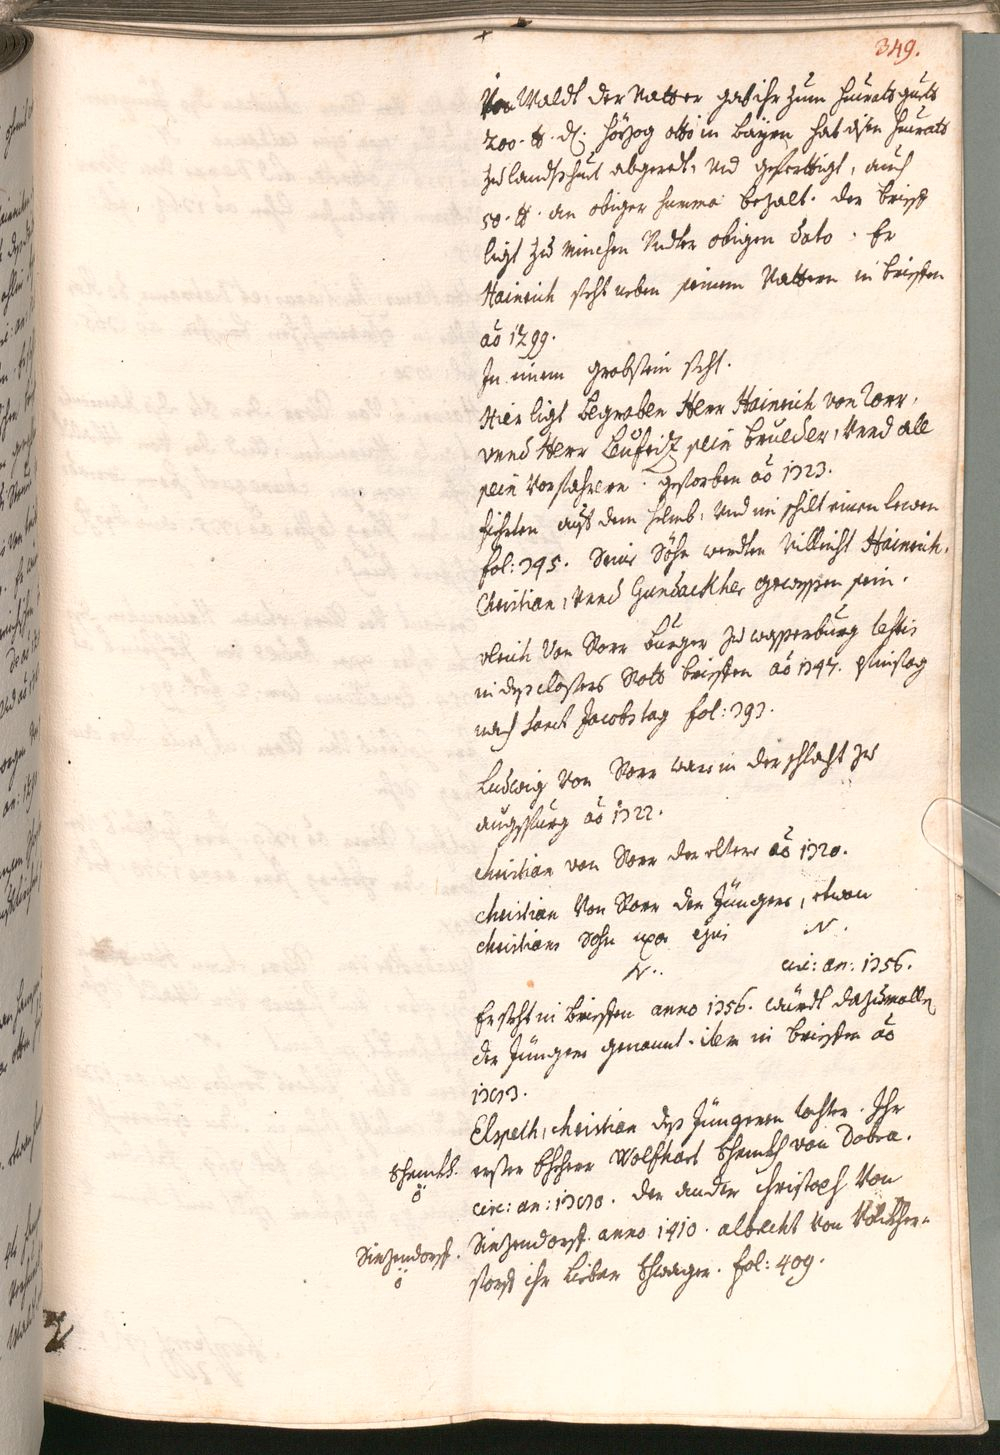 349.
Von Waldt der Vatter gab ihr zum heürats guets
200. ℔. dl. Hörzog otto in bayrn hat disen heürats
zu landtshuet abgeredt, und geferttigt, auch
50. ℔. an obiger summa bezalt. der brieff
ligt zu München Under obigen dato. Er
Hainrich steht neben seinem Vattern in brieffen
aō 1299.
In einem grabstein steht.
Hier ligt begraben Herr Hainrich von Rorr,
vnnd Herr Seüfridt sein brueder, vnnd all
sein Vorfahrern. gestorben aō 1323.
fiehrten auf dem Helmb, Und im schilt einen lewen
fol: 395. Seine Söhn werdten Villeicht Hainrich.
Christian, Vnnd Gundackher gewessen sein.
Vlrich Von Rorr burger zu wasserburg testis
in dess closters Rott brieffen aō 1347. Pfinstag
nach Sanct Jacobs tag fol: 393.
Ludwig Von Rorr ware in der schlacht zu
augspurg aō 1322.
Christian von Rorr der eltere aō 1320.
Christian Von Rorr der Jüngere, etwan
Christians Sohn uxor eius N.
N..
circ: an: 1356.
Er steht in brieffen anno 1356. würdt dazumallen
der Jünger genannt. item in brieffen aō
1363.
Elspeth, Christian dess Jüngeren tochter. Ihr
Schenckh. erster Eheherr Wolfhart Schenckh von Dobra.
circ: an: 1380. der ander Christoph Von
Sinzendorff. Sinzendorff. anno 1410. albrecht Von Volckher-
storff ihr lieber Schwager. fol: 409.